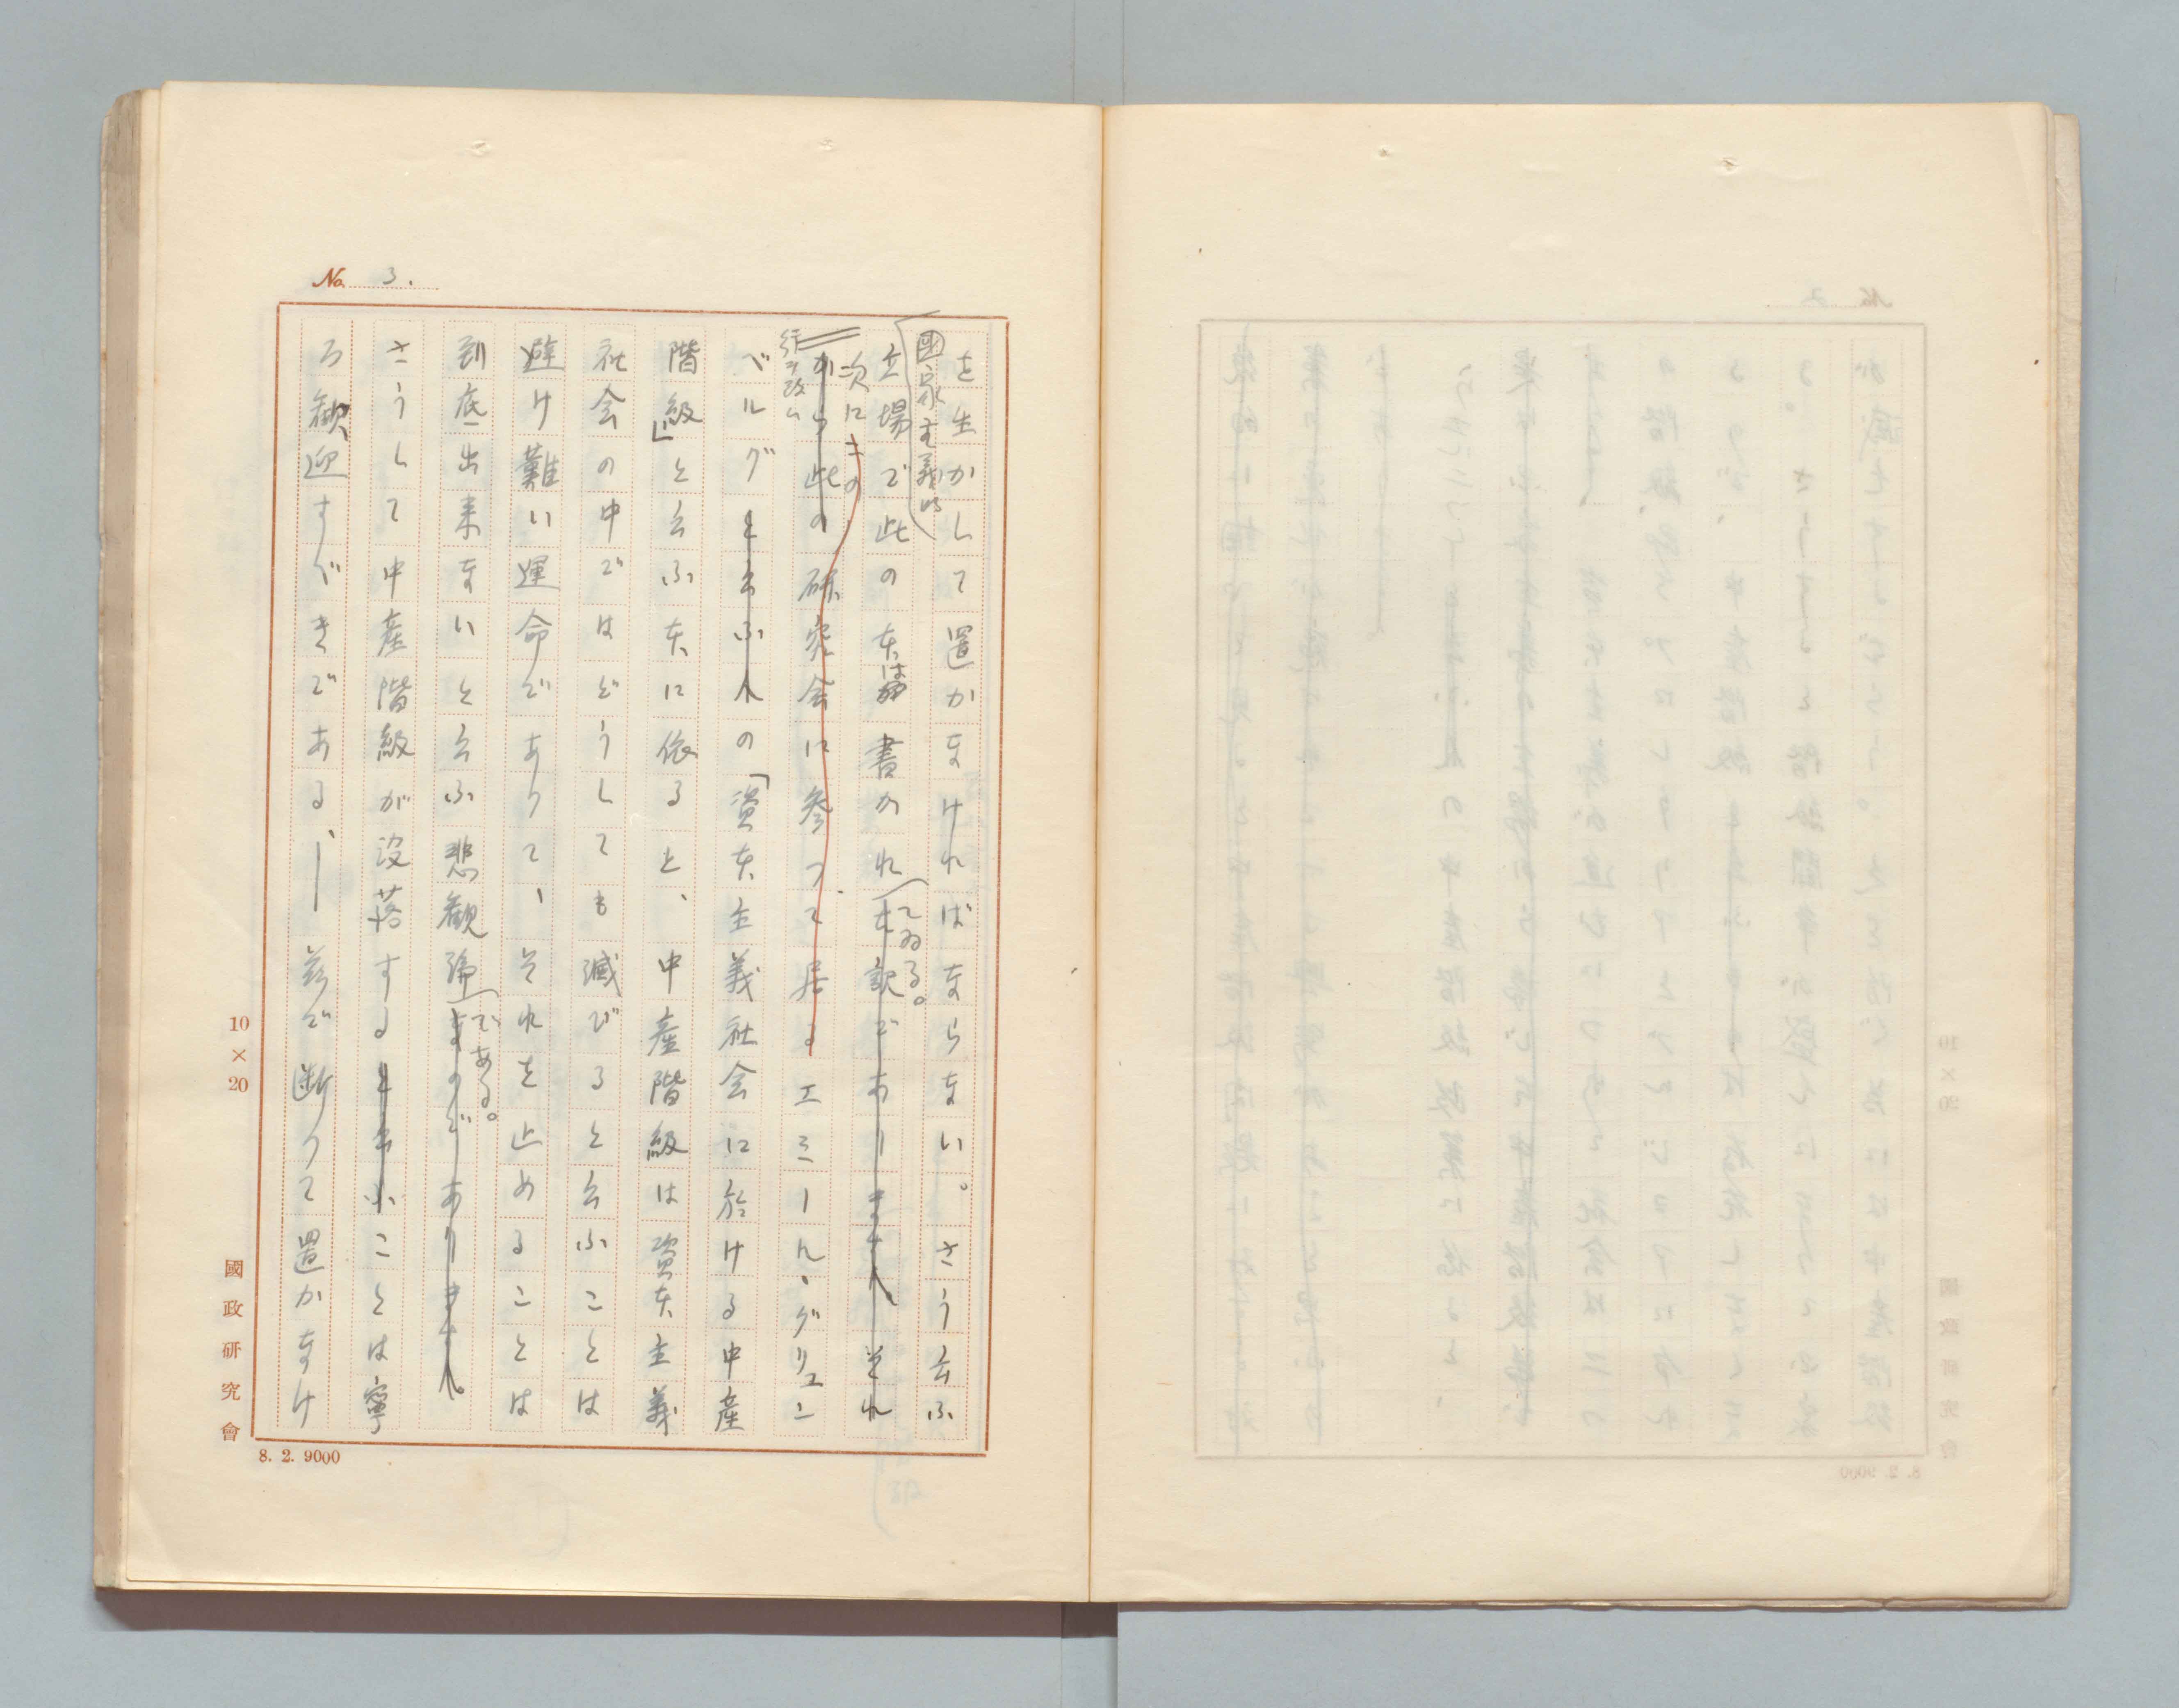 No. 3.
を生かして置かなければならない。さう云ふ
國家主義的
立場で此の本は書かれてゐる。
本訳でありません。それ
次に
行ヲ改ム
から此の研究会に参つて居るエミール・グリュン
ベルグと云ふ人の「資本主義社会に於ける中産
階級」と云ふ本に依ると、中産階級は資本主義
社会の中ではどうしても滅びると云ふことは
避け難い運命でありて、それを止めることは
到底出来ないと云ふ悲観論である。
なのであります。
さうして中産階級が没落すると云ふことは寧
ろ歓迎すべきである、― 茲で断りて置かなけ
10×20
國政研究會
8. 2. 9000